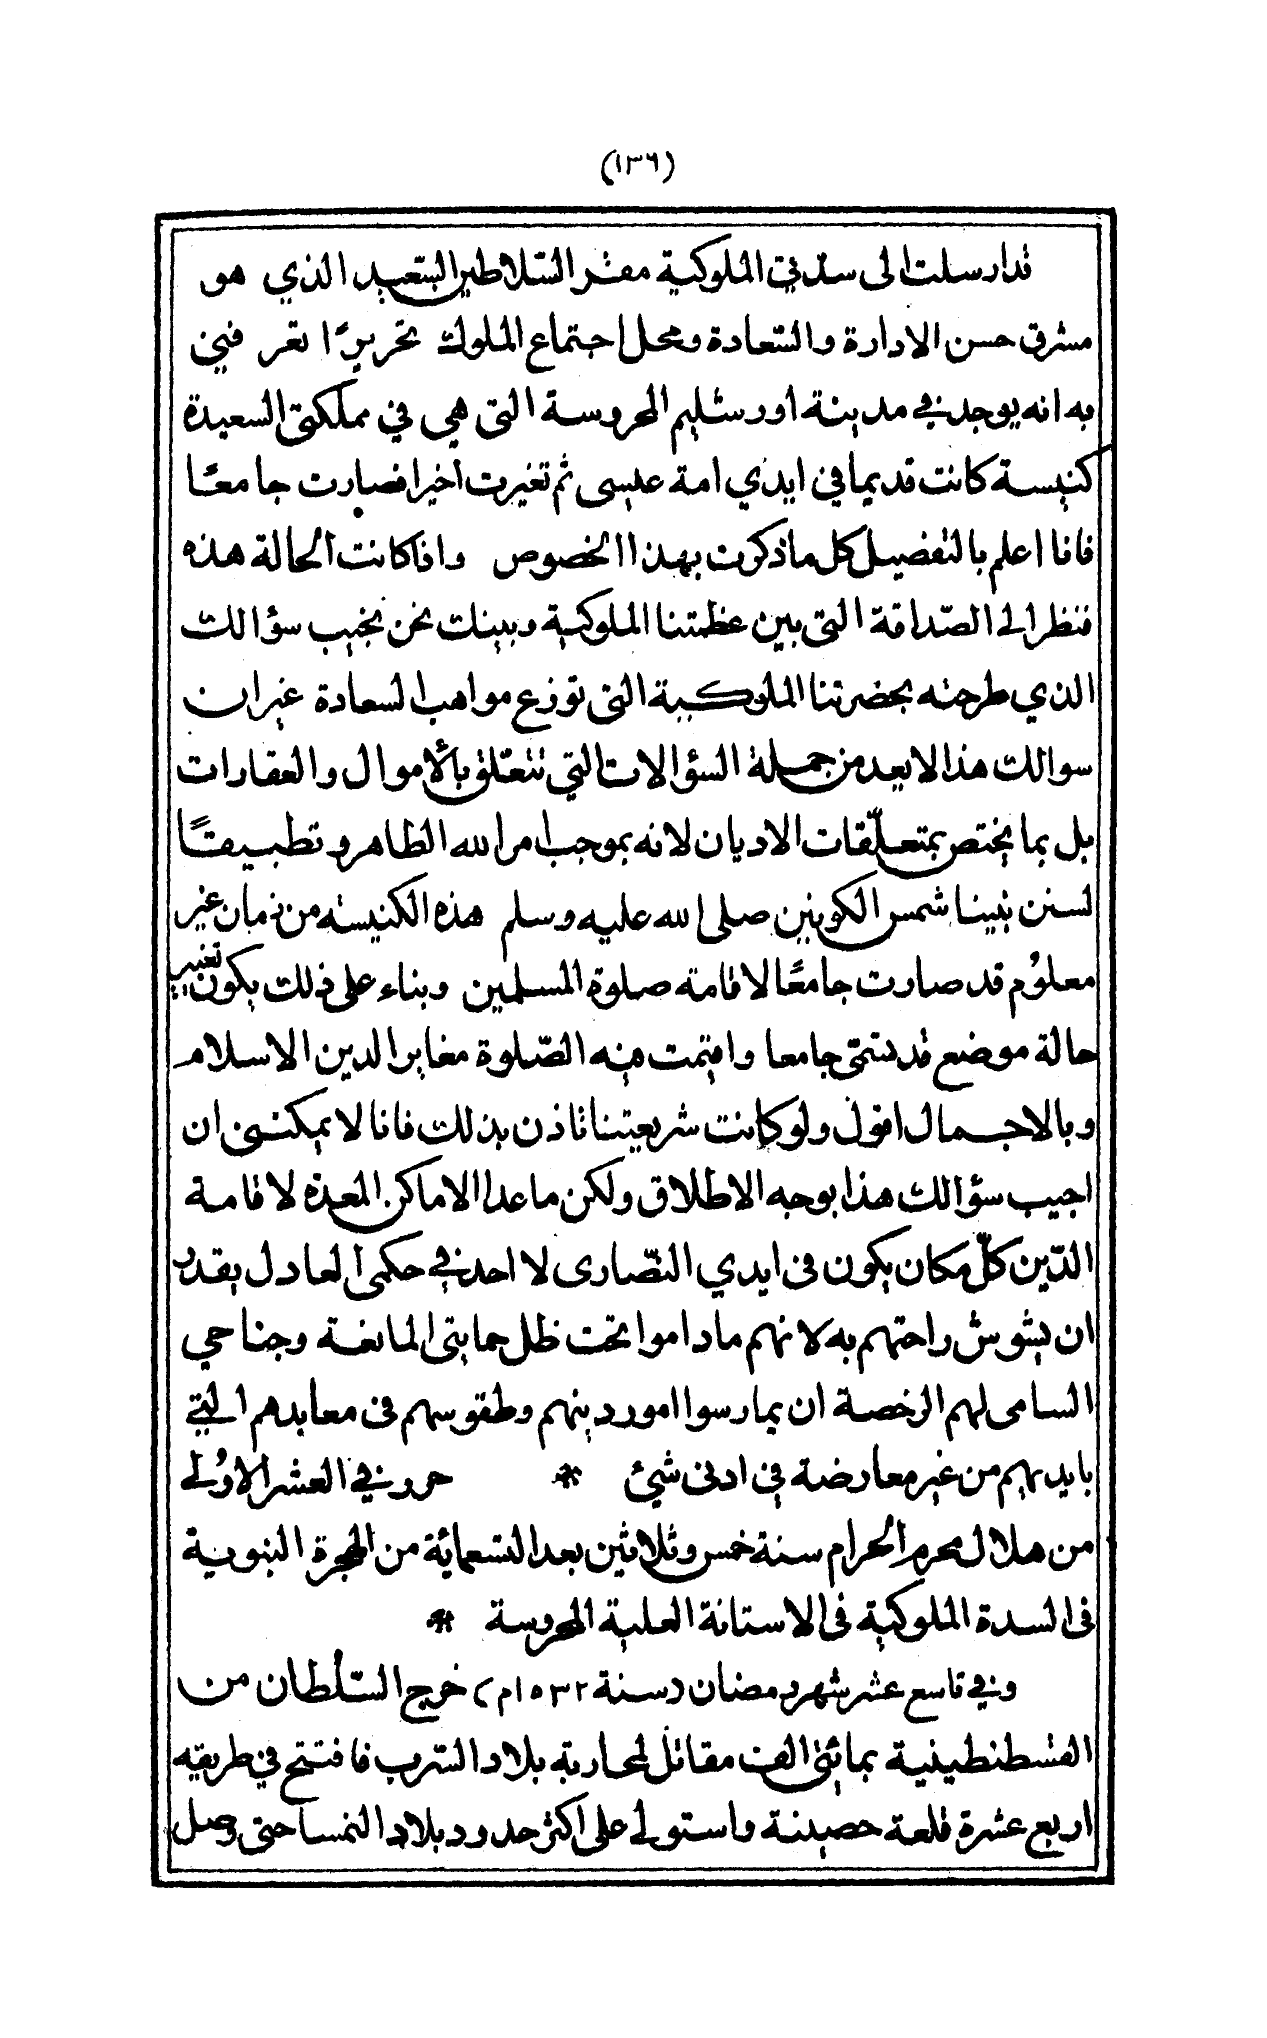 (١٣٦)
قد ارسلت الى سدتي الملوكية مقر السلاطين السعيد الذي هو
مشرق حسن الادارة والسّعادة ومحل اجتماع الملوك تحريرًا تعرفني
به انه يوجد في مدينة اورشليم المحروسة التي هي في مملكتي السعيدة
كنيسة كانت قديما في ايدي امة عيسى ثم تغيرت اخيرا فصارت جامعًا
فانا اعلم بالتفصيل كل ما ذكرت بهذا الخصوص واذا كانت الحالة هذه
فنظرا الى الصّداقة التي بين عظمتنا الملوكية وبينك نحن نجيب سؤالك
الذي طرحته بحضرتنا الملوكية التي توزع مواهب السعادة غير ان
سوالك هذا لا يعد من جملة السؤالات التي تتعلّق بالأموال والعقارات
بل بما يختص بمتعلّقات الاديان لانه بموجب امر الله الظاهر وتطبيقًا
لسنن نبينا شمس الكونين صلى الله عليه وسلم هذه الكنيسة من زمان غير
معلوُم قد صارت جامعًا لاقامة صلوة المسلمين وبناء على ذلك يكون تغيير
حالة موضع قد سمّي جامعا واقيمت فيه الصّلوة مغاير الدين الاسلام
وبالاجمال اقول ولو كانت شريعتنا تاذن بذلك فانا لا يمكنني ان
اجيب سؤالك هذا بوجه الاطلاق ولكن ما عدا الاماكن المعدّه لاقامة
الدّين كلّ مكان يكون في ايدي النصّارى لا احد في حكمي العادل يقدر
ان يشوش راحتهم به لانهم ما داموا تحت ظل حمايتي المانعة وجناحي
السامي لهم الرخصة ان يمارسوا امور دينهم وطقوسهم في معابدهم التي
بايديهم من غير معارضة في ادنى شئ * حرر في العشر الاوُلى
من هلال محرم الحرام سنة خمس وثلاثين بعد التسعمائة من الهجرة النبوية
في السدة الملوكية في الاستانة العلية المحروسة *
وفي تاسع عشر شهر رمضان (سنة ١٥٣٢م) خرج السّلطان من
القسطنطينية بمائتي الف مقاتل لمحاربة بلاد السّرب فافتتح في طريقه
اربع عشرة قلعة حصينة واستولى على اكثر حدود بلاد النمسا حتى وصل